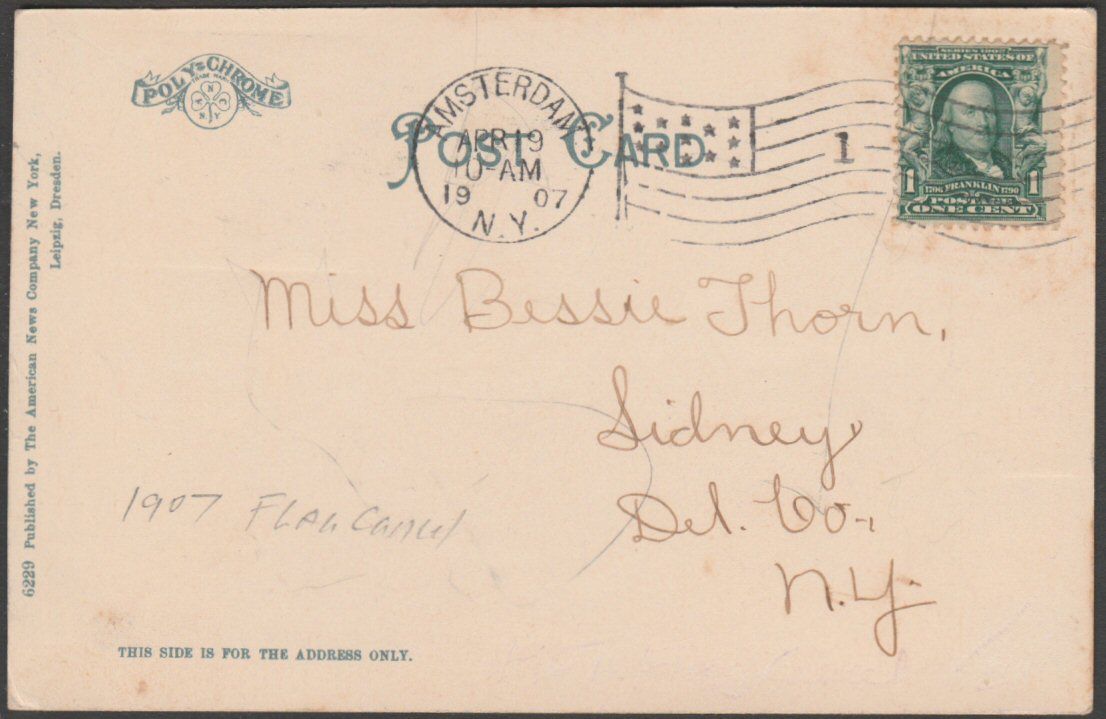 POLY=CHROME
TRADE MARK
N
N.Y.
POST CARD
AMSTERDAM
APR 19
10-AM
19 07
N.Y.
1
SERIES 1902
UNITED STATES OF
AMERICA
1 1706 FRANKLIN 1790 1
POSTAGE
ONE CENT
Miss Bessie Thorn,
Sidney
Del. Co.,
N.Y.
1907 Flag Cancel
6229 Published by The American News Company New York,
Leipzig, Dresden.
THIS SIDE IS FOR THE ADDRESS ONLY.